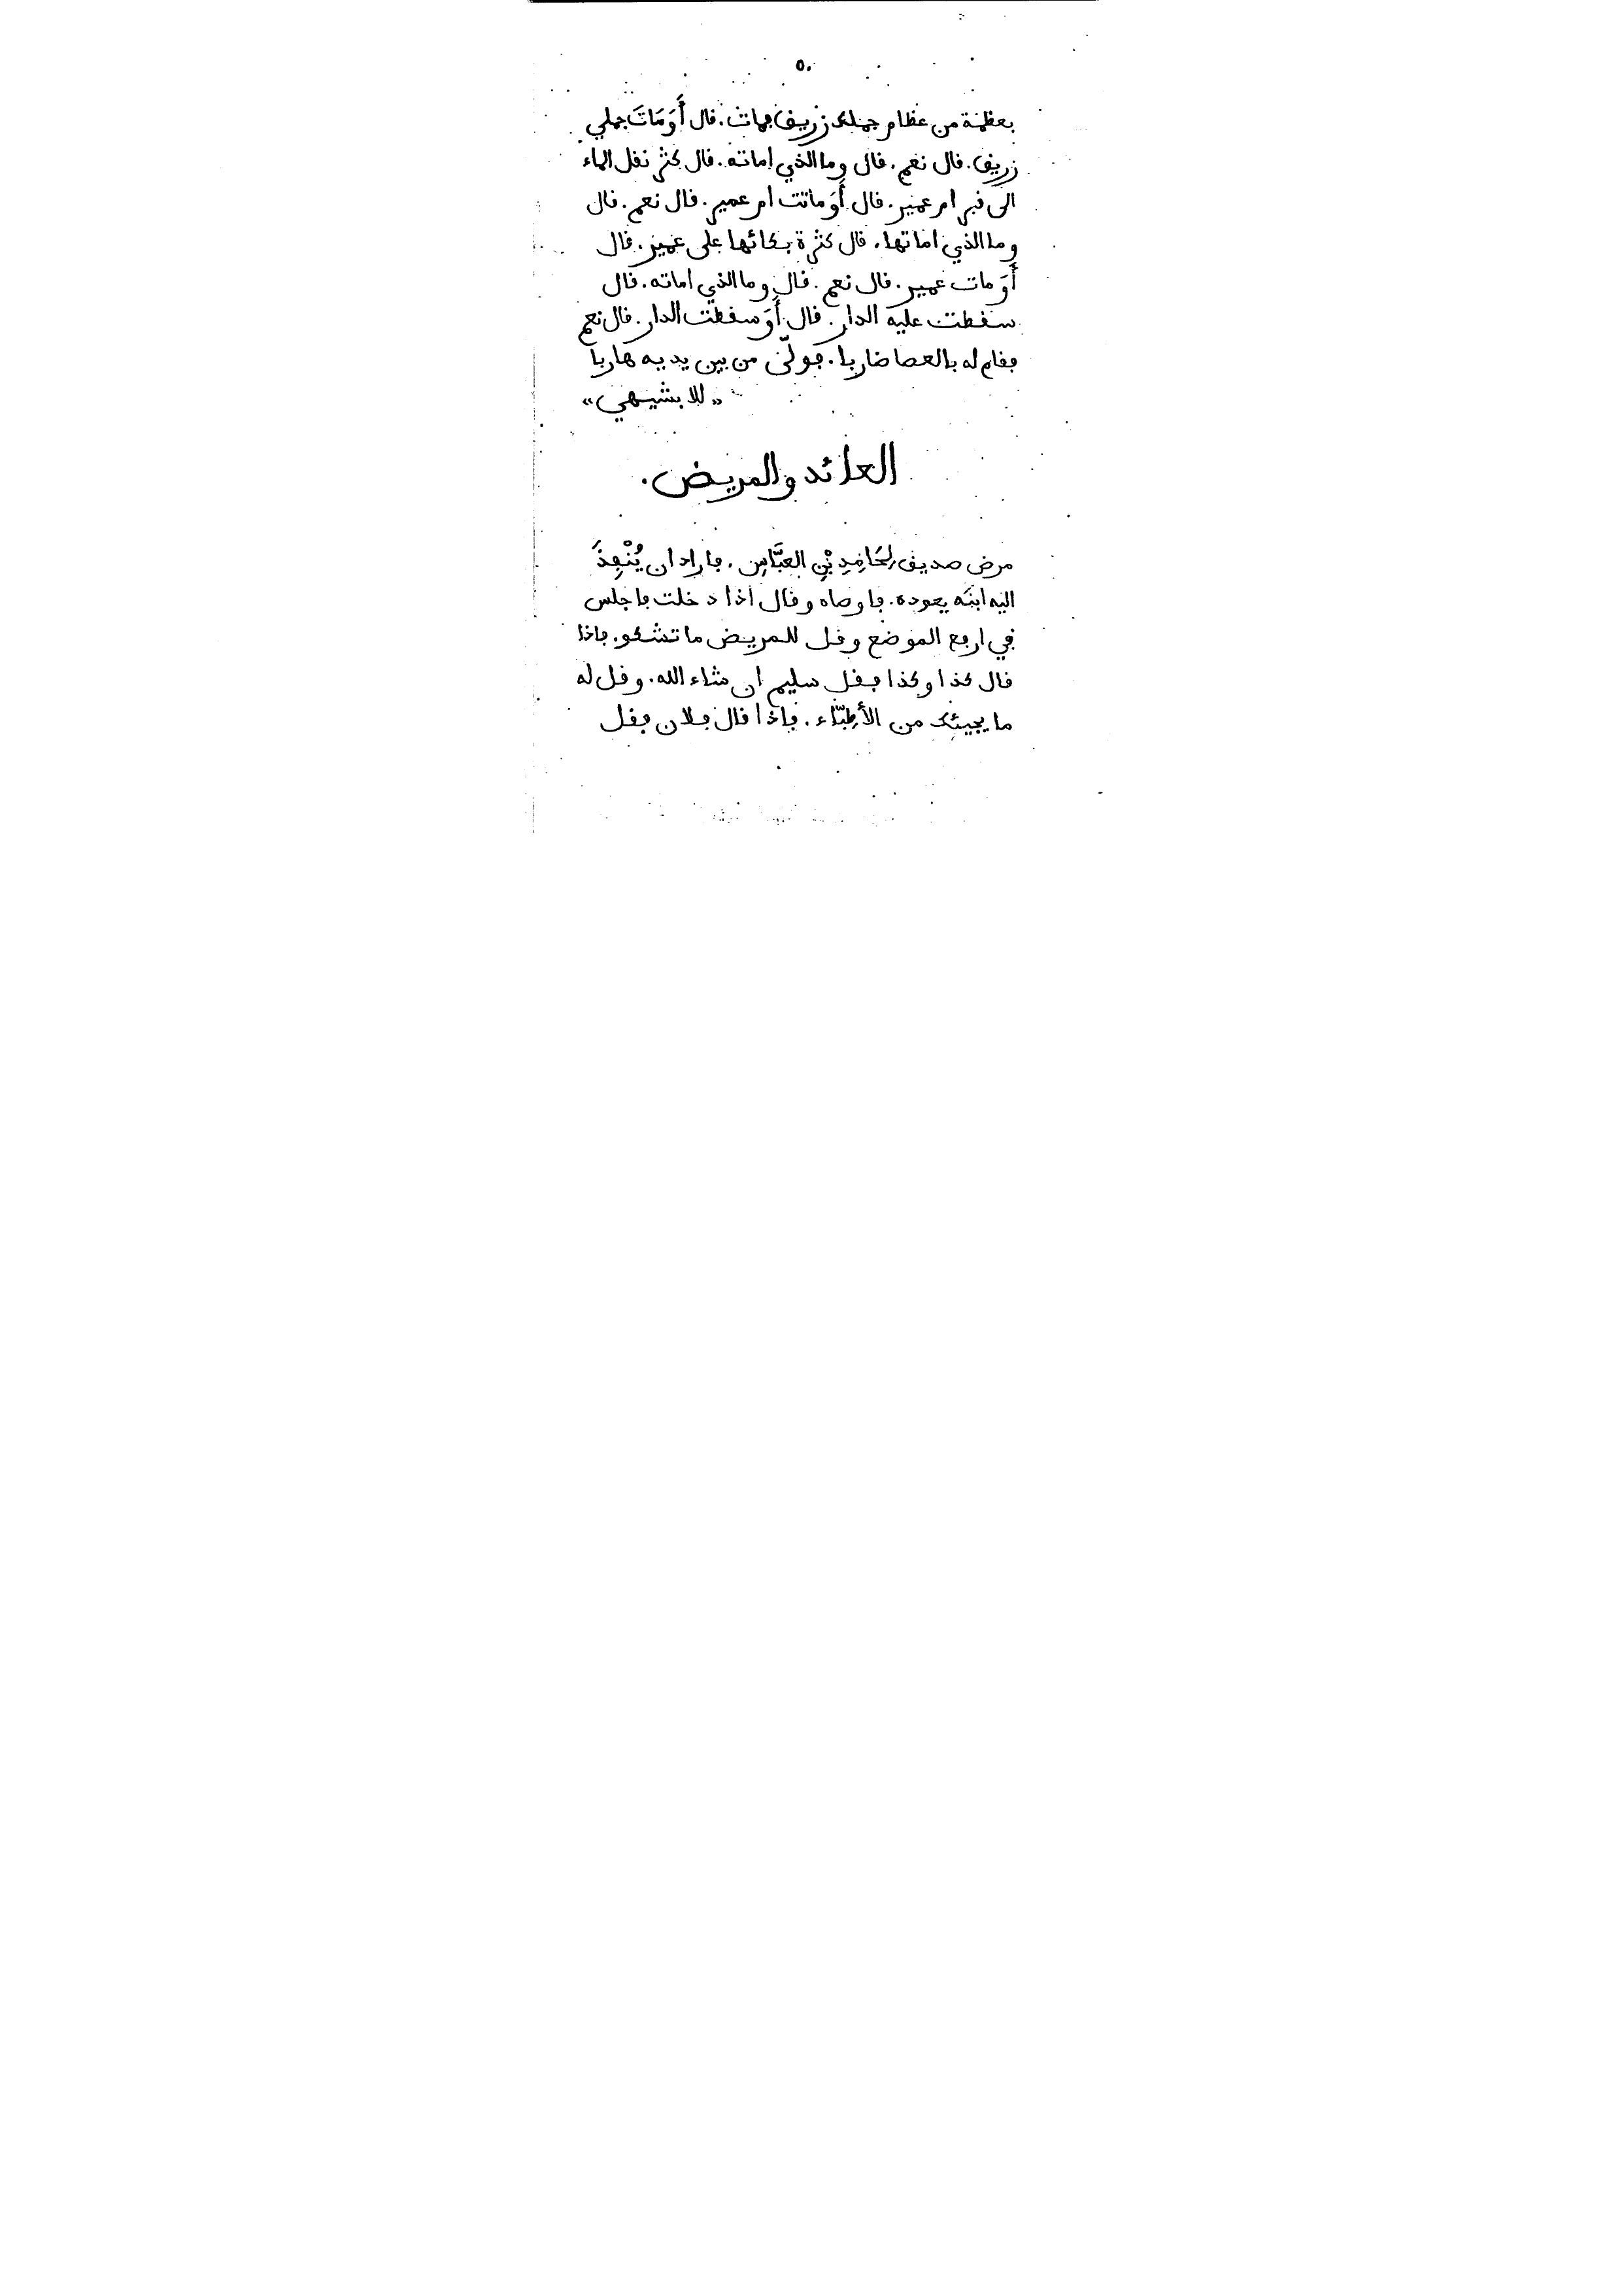 ٥٠
بعظمة من عظام جملك زريق فمات. قال أَوَمَاتَ جملي
زريق. قال نعم. قال وما الذي اماته. قال كثر نقل الماء
الى قبر ام عمير. قال أَوَ ماتت ام عمير. قال نعم. قال
وما الذي اماتها. قال كثرة بكائها على عمير. قال
أَوَ مات عمير. قال نعم. قال وما الذي اماته. قال
سقطت عليه الدار. قال أَوَ سقطت الدار. قال نعم
فقام له بالعصا ضاربا. فولّى من بين يديه هاربا
«للابشيهي»
العائد والمريض.
مرض صديق لِحَامِدِ بْنِ العبَّاسِ. فاراد ان يُنْفِذَ
اليه ابنَه يعوده. فاوصاه وقال اذا دخلت فاجلس
في ارفع الموضع وقل للمريض ما تشكو. فاذا
قال كذا وكذا فقل سليم ان شاء الله. وقل له
ما يجيئك من الأَطِبّاء. فاذا قال فلان فقل